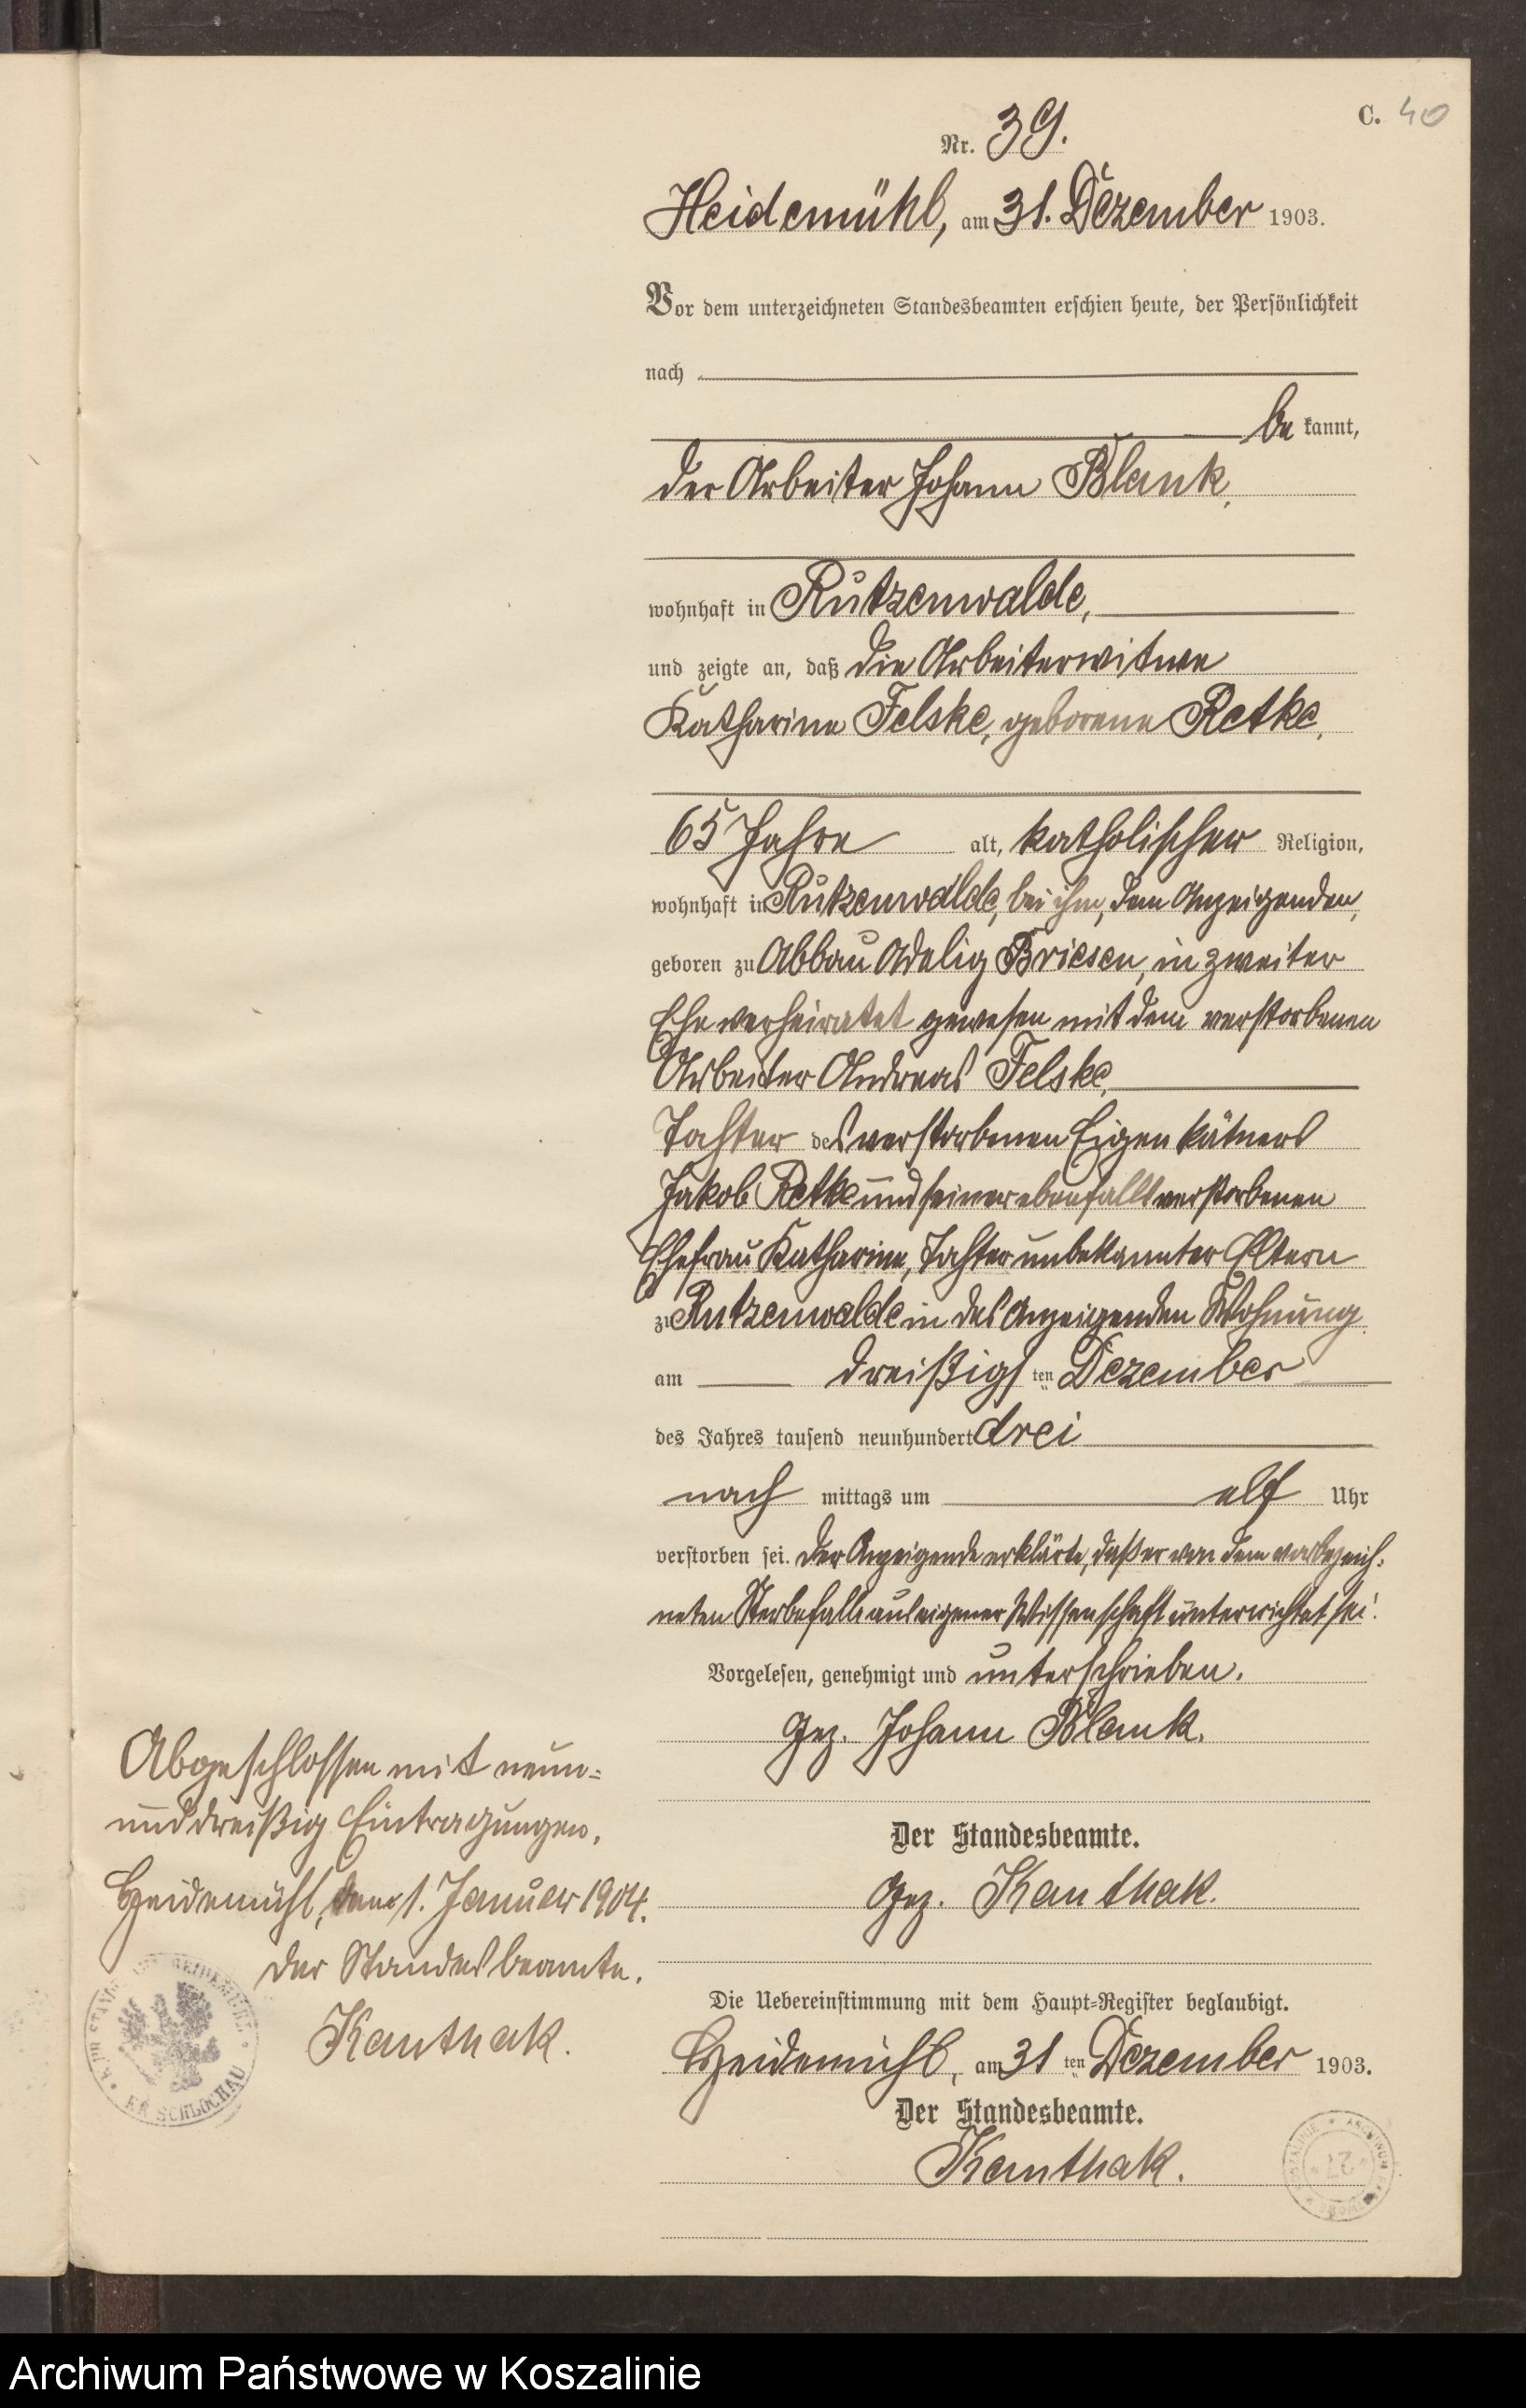 C. 40
Nr. 39.
Heidemühl, am 31. Dezember 1903.
Vor dem unterzeichneten Standesbeamten erschien heute, der Persönlichkeit
nach
be kannt,
der Arbeiter Johann Blank,
wohnhaft in Rutzenwalde,
und zeigte an, daß die Arbeiterwitwe
Katharina Felske, geborene Retke,
65 Jahre alt, katholischer Religion,
wohnhaft in Rutzenwalde, bei ihm, dem Anzeigenden,
geboren zu Abbau Adelig Briesen, in zweiter
Ehe verheiratet gewesen mit dem verstorbenen
Arbeiter Andreas Felske,
Tochter des verstorbenen Eigenkätners
Jakob Retke und seiner ebenfalls verstorbenen
Ehefrau Katharina, Tochter unbekannter Eltern
zu Rutzenwalde in des Anzeigenden Wohnung
am dreißigsten Dezember
des Jahres tausend neunhundert drei
nach mittags um elf Uhr
verstorben sei. Der Anzeigende erklärte, daß er von dem vorbezeich-
neten Sterbefalle aus eigener Wissenschaft unterrichtet sei.
Vorgelesen, genehmigt und unterschrieben.
Gez. Johann Blank.
Der Standesbeamte.
Gez. Kanthak.
Die Uebereinstimmung mit dem Haupt-Register beglaubigt.
Heidemühl, am 31 ten Dezember 1903.
Der Standesbeamte.
Kanthak.
Abgeschlossen mit neun-
unddreißig Eintragungen.
Heidemühl, den 1. Januar 1904.
Der Standesbeamte.
Kanthak.
KR. SCHLOCHAU
27
Archiwum Państwowe w Koszalinie